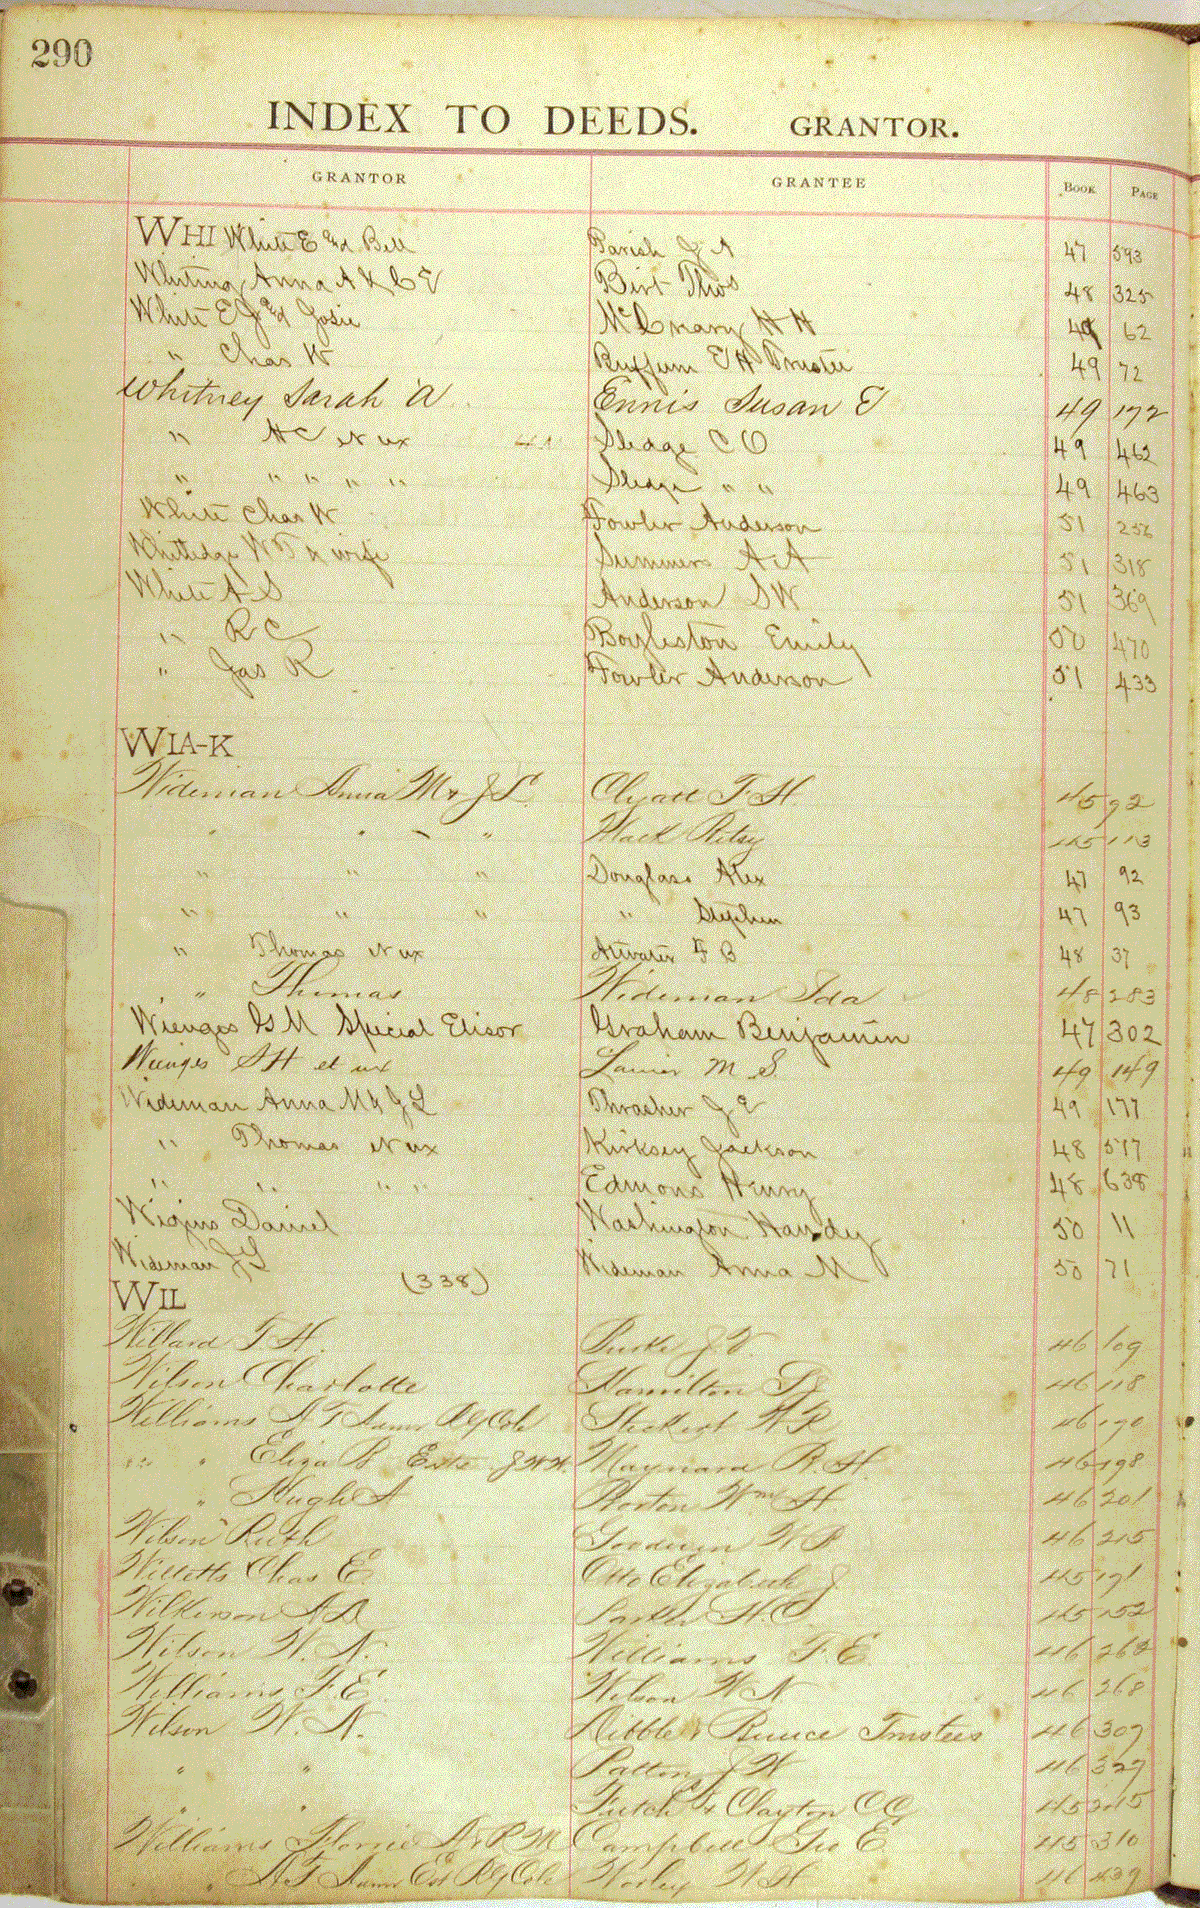 290
INDEX TO DEEDS. GRANTOR.
GRANTOR GRANTEE BOOK PAGE
WHI White E and Bell Parish J A 47 593
Whiting Anna A & C E Birt Thos 48 325
White E J and Josie McCrary H H 49 62
" Chas W Buffum E H Trustee 49 72
Whitney Sarah A Ennis Susan E 49 172
" H C et ux Sledge C O 49 462
" " " " " Sledge " " 49 463
White Chas W Fowler Anderson 51 256
Whitledge W T & wife Summers A A 51 318
White A S Anderson S W 51 369
" R C Boyleston Emily 50 470
" Jas R Fowler Anderson 51 433
WIA-K
Wideman Anna M & J L Clyatt T. H. 45 92
" " " " Mack Ritsy 45 113
" " " Douglass Alex 47 92
" " " " Stephen 47 93
" Thomas et ux Atwater F B 48 37
" Thomas Wideman Ida 48 283
Wienges G M Special Elisor Graham Benjamin 47 302
Wienges S H et ux Lanier M S. 49 149
Wideman Anna M & J L Thrasher J E 49 177
" Thomas et ux Kirksey Jackson 48 577
" " " " Edmons Henry 48 638
Wigins Daniel Washington Handy 50 11
Wideman J L Wideman Anna M 50 71
(338)
WIL
Willard T. H. J. V. 46 109
Wilson Charlotte Hamilton 46 118
Williams A T H. R 46 190
" " Eliza B J W W. Maynard R. H. 46 198
" Hugh A Borton Wm H. 46 201
Wilson Ruth Goodwin W B 46 215
Willetts Chas. E. Otto Elizabeth J 45 191
Wilkerson A. H. C. 45 152
Wilson W. N. Williams F. E. 46 268
Williams F. E. Wilson W N 46 268
Wilson W. N. Dibble & Bunce Trustees 46 307
" " Patten J W 46 327
" " Futch & Clayton 45
Williams Florrie A & R M Campbell Geo E. 45 310
" A T Worley W H 46 439